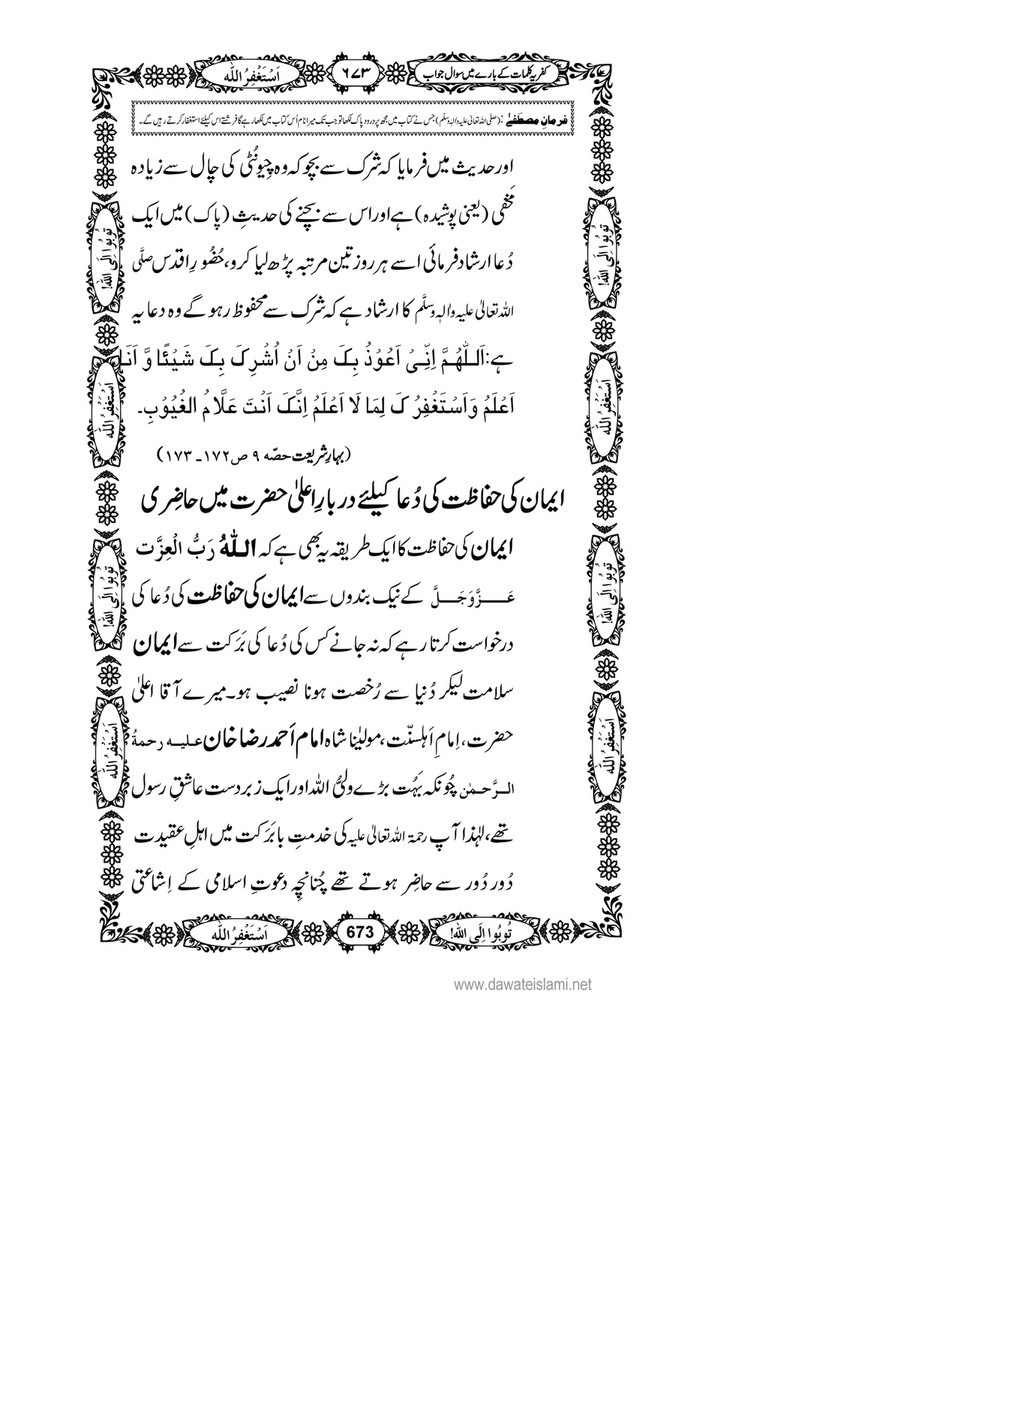 کفریہ کلمات کے بارے میں سوال جواب
٦٧٣
اَسْتَغْفِرُ اللّٰه
فرمانِ مصطَفٰے : (صلی اللہ تعالیٰ علیہ والہٖ وسلّم) جس نے کتاب میں مجھ پر درود پاک لکھا تو جب تک میرا نام اُس کتاب میں لکھا رہے گا فرشتے اس کیلئے استغفار کرتے رہیں گے۔
اور حدیث میں فرمایا کہ شرک سے بچو کہ وہ چِیونٹی کی چال سے زیادہ
مَخفی (یعنی پوشیدہ) ہے اور اس سے بچنے کی حدیثِ (پاک) میں ایک
دُعا ارشاد فرمائی اسے ہر روز تین مرتبہ پڑھ لیا کرو، حُضُورِ اقدس صلَّی
اللہ تعالیٰ علیہ والہٖ وسلَّم کا ارشاد ہے کہ شرک سے محفوظ رہو گے وہ دعا یہ
ہے: اَللّٰهُمَّ اِنِّیْ اَعُوْذُ بِکَ مِنْ اَنْ اُشْرِکَ بِکَ شَیْئًا وَّ اَنَا
اَعْلَمُ وَاَسْتَغْفِرُ کَ لِمَا لَا اَعْلَمُ اِنَّکَ اَنْتَ عَلَّامُ الْغُیُوْبِ۔
(بہارِ شریعت حصّہ ۹ ص ۱۷۲۔۱۷۳)
ایمان کی حفاظت کی دُعا کیلئے دربارِ اعلیٰ حضرت میں حاضِری
ایمان کی حفاظت کا ایک طریقہ یہ بھی ہے کہ اللّٰهُ رَبُّ الْعِزَّت
عَزَّوَجَلَّ کے نیک بندوں سے ایمان کی حفاظت کی دُعا کی
درخواست کرتا رہے کہ نہ جانے کس کی دُعا کی بَرَکت سے ایمان
سلامت لیکر دُنیا سے رُخصت ہونا نصیب ہو۔ میرے آقا اعلیٰ
حضرت، اِمامِ اَہلسنّت، مولیٰنا شاہ امام اَحمد رضا خان علیہ رحمۃُ
الرَّحمٰن چُونکہ بہُت بڑے ولیُّ اللہ اور ایک زبردست عاشقِ رسول
تھے، لہٰذا آپ رحمۃ اللہ تعالیٰ علیہ کی خدمتِ بابَرَکت میں اہلِ عقیدت
دُور دُور سے حاضِر ہوتے تھے چُنانچِہ دعوتِ اسلامی کے اِشاعَتی
تُوبُوا اِلَی اللّٰه!
اَسْتَغْفِرُ اللّٰه
تُوبُوا اِلَی اللّٰه!
اَسْتَغْفِرُ اللّٰه
تُوبُوا اِلَی اللّٰه!
اَسْتَغْفِرُ اللّٰه
تُوبُوا اِلَی اللّٰه!
اَسْتَغْفِرُ اللّٰه
تُوبُوا اِلَی اللّٰه!
673
اَسْتَغْفِرُ اللّٰه
www.dawateislami.net